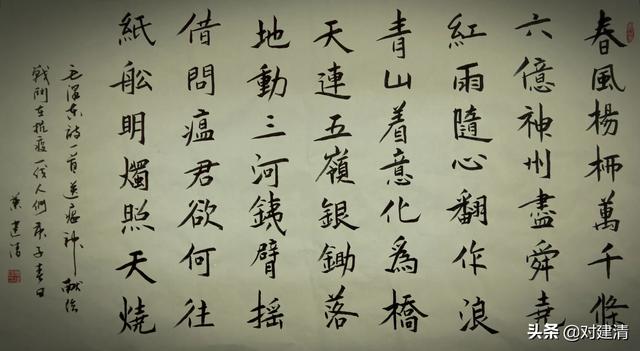 春風楊柳萬千條
六億神州盡舜堯
紅雨隨心翻作浪
青山着意化為橋
天連五嶺銀鋤落
地動三河銕臂摇
借問瘟君欲何往
紙舩明燭照天燒
毛泽东詩一首送瘟神献给
戰鬥在抗疫一线人们庚子春日
建清
头条 @对建清